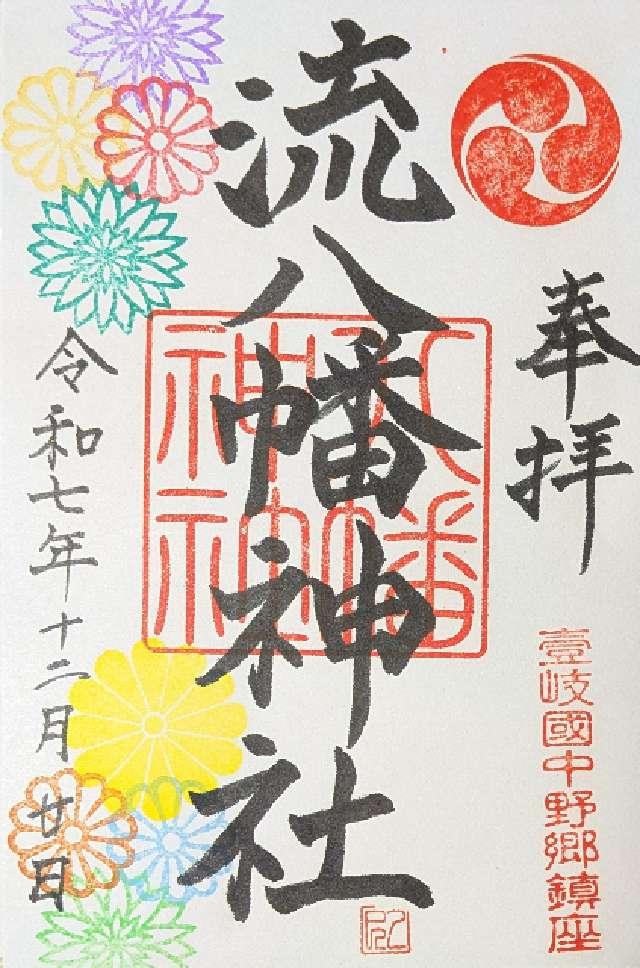 奉拝
壹岐國中野郷鎮座
流八幡神社
八幡
神社
令和七年十二月廿日